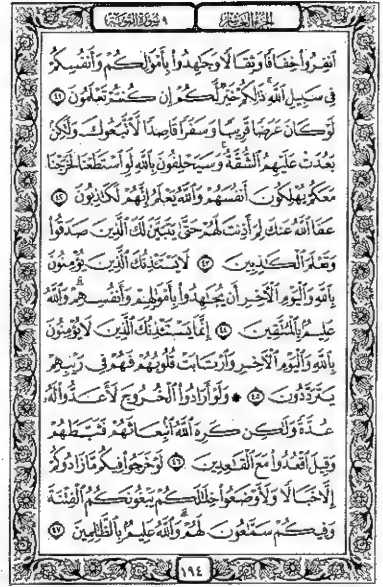 الجزء العاشر
٩ سورة التوبة
ٱنفِرُوا۟ خِفَافًا وَثِقَالًا وَجَٰهِدُوا۟ بِأَمْوَٰلِكُمْ وَأَنفُسِكُمْ
فِى سَبِيلِ ٱللَّهِ ۚ ذَٰلِكُمْ خَيْرٌ لَّكُمْ إِن كُنتُمْ تَعْلَمُونَ ٤١
لَوْ كَانَ عَرَضًا قَرِيبًا وَسَفَرًا قَاصِدًا لَّٱتَّبَعُوكَ وَلَٰكِنۢ
بَعُدَتْ عَلَيْهِمُ ٱلشُّقَّةُ ۚ وَسَيَحْلِفُونَ بِٱللَّهِ لَوِ ٱسْتَطَعْنَا لَخَرَجْنَا
مَعَكُمْ يُهْلِكُونَ أَنفُسَهُمْ وَٱللَّهُ يَعْلَمُ إِنَّهُمْ لَكَٰذِبُونَ ٤٢
عَفَا ٱللَّهُ عَنكَ لِمَ أَذِنتَ لَهُمْ حَتَّىٰ يَتَبَيَّنَ لَكَ ٱلَّذِينَ صَدَقُوا۟
وَتَعْلَمَ ٱلْكَٰذِبِينَ ٤٣ لَا يَسْتَـْٔذِنُكَ ٱلَّذِينَ يُؤْمِنُونَ
بِٱللَّهِ وَٱلْيَوْمِ ٱلْءَاخِرِ أَن يُجَٰهِدُوا۟ بِأَمْوَٰلِهِمْ وَأَنفُسِهِمْ ۗ وَٱللَّهُ
عَلِيمٌۢ بِٱلْمُتَّقِينَ ٤٤ إِنَّمَا يَسْتَـْٔذِنُكَ ٱلَّذِينَ لَا يُؤْمِنُونَ
بِٱللَّهِ وَٱلْيَوْمِ ٱلْءَاخِرِ وَٱرْتَابَتْ قُلُوبُهُمْ فَهُمْ فِى رَيْبِهِمْ
يَتَرَدَّدُونَ ٤٥ ۞ وَلَوْ أَرَادُوا۟ ٱلْخُرُوجَ لَأَعَدُّوا۟ لَهُۥ
عُدَّةً وَلَٰكِن كَرِهَ ٱللَّهُ ٱنۢبِعَاثَهُمْ فَثَبَّطَهُمْ
وَقِيلَ ٱقْعُدُوا۟ مَعَ ٱلْقَٰعِدِينَ ٤٦ لَوْ خَرَجُوا۟ فِيكُم مَّا زَادُوكُمْ
إِلَّا خَبَالًا وَلَأَوْضَعُوا۟ خِلَٰلَكُمْ يَبْغُونَكُمُ ٱلْفِتْنَةَ
وَفِيكُمْ سَمَّٰعُونَ لَهُمْ ۗ وَٱللَّهُ عَلِيمٌۢ بِٱلظَّٰلِمِينَ ٤٧
١٩٤